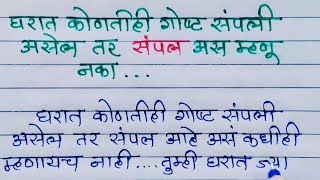 घरात कोणतीही गोष्ट संपली
असेल तर संपल अस म्हणू
नका...
घरात कोणतीही गोष्ट संपली
असेल तर संपल आहे असं कधीही
म्हणायच नाही....तुम्ही घरात ज्या